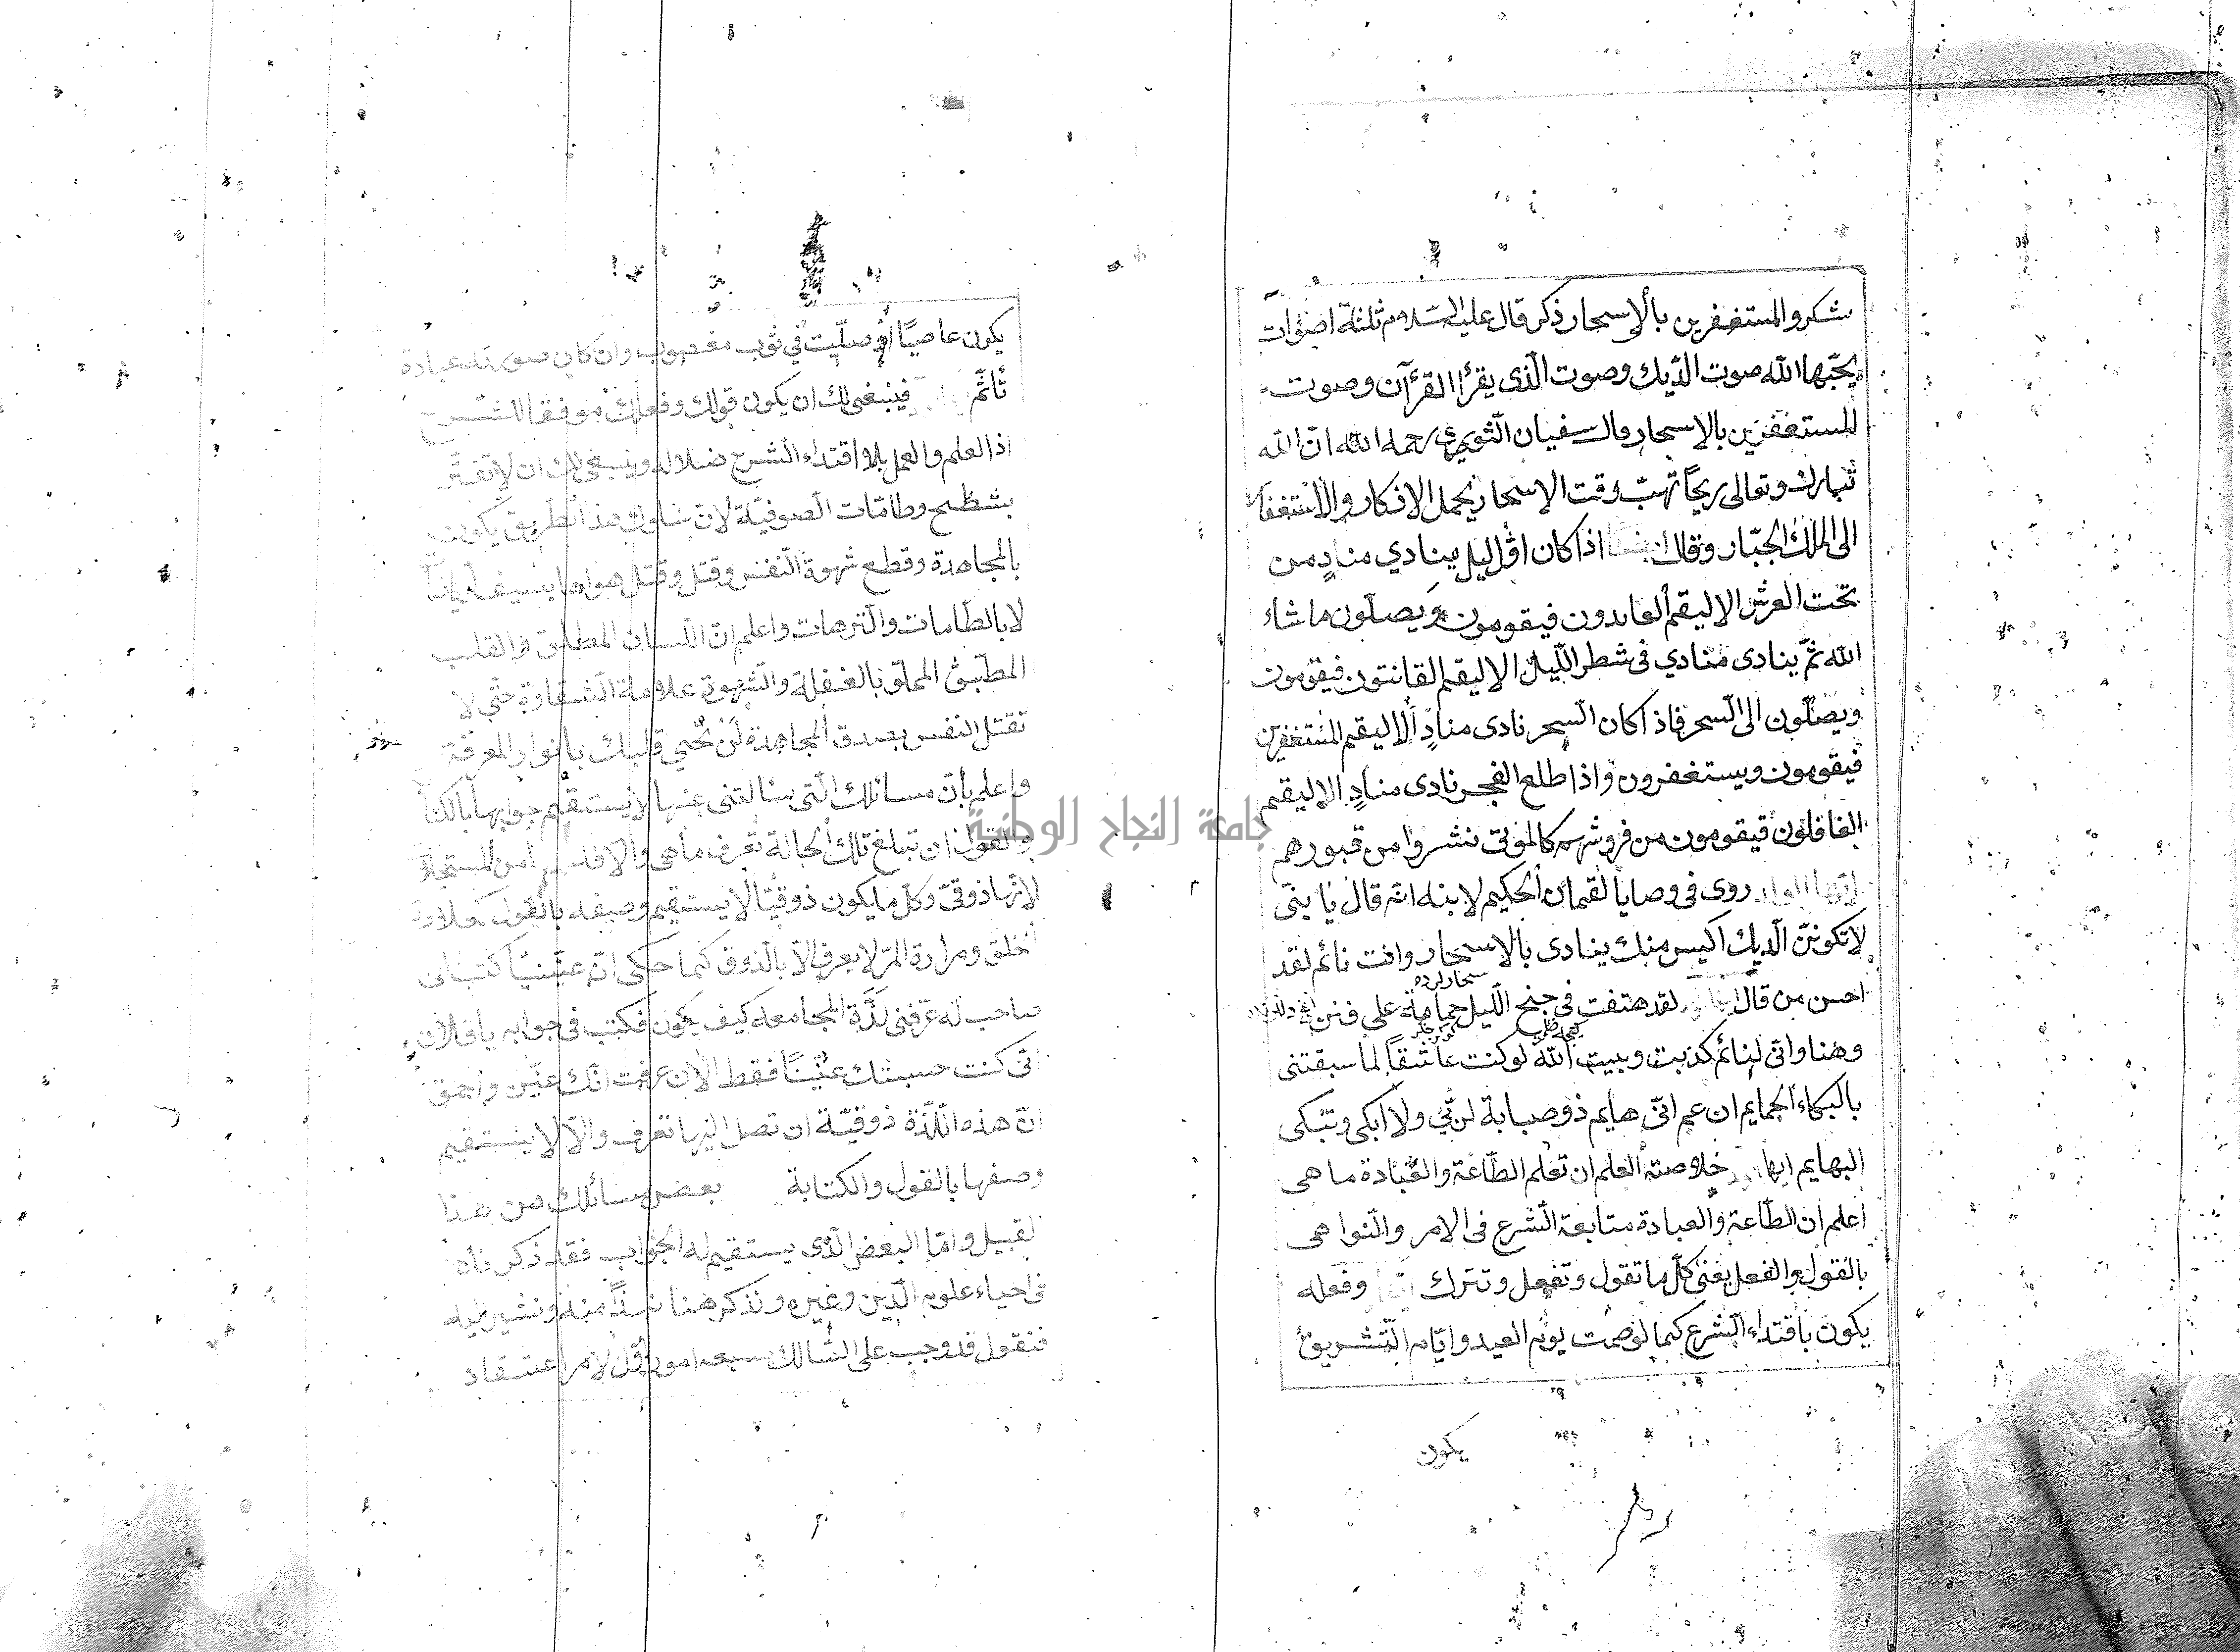 شكر والمستغفرين بالاسحار ذكر قال عليه السلام ثلثة اصوات
يحبّها الله صوت الدّيك وصوت الّذى يقرأ القرآن وصوت
المستغفرين بالاسحار وقال سفيان الثّورى رحمه الله انّ الله
تبارك وتعالى ريحاً تهبّ وقت الاسحار يحمل الافكار والاستغفار
الى الملك الجبّار وقال ايضاً اذا كان اوّل ليل ينادي منادٍ من
تحت العرش الا ليقم العابدون فيقومون ويصلّون ما شاء
الله ثمّ ينادى منادي فى شطر اللّيل الا ليقم القانتون فيقومون
ويصلّون الى السّحر فاذا كان السّحر نادى منادٍ ألا ليقم المستغفرين
فيقومون ويستغفرون واذا طلع الفجر نادى منادٍ الا ليقم
الغافلون فيقومون من فروشهم كالموتى نشروا من قبورهم
ايّها الولد روى فى وصايا لقمان الحكيم لابنه انّه قال يا بنىّ
لا تكوننّ الّديك اكيس منك ينادى بالاسحار وانت نائم لقد
احسن من قال لقد هتفت فى جنح اللّيل حمامة على فنن
وهنا وانّى لنائم كذبت وبيت الله لو كنت عاشقاً لما سبقتنى
بالبكاء الحمايم ان عم انّى هايم ذو صبابة لربّي ولا ابكى وتبكى
البهايم ايها خلاصته العلم ان تعلم الطّاعة والعبادة ما هى
اعلم ان الطّاعة والعبادة متابعة الشّرع فى الامر والنّواهى
بالقول والفعل يعنى كلّ ما تقول وتفعل وتترك وفعله
يكون باقتداء الشّرع كما لو صمت يوم العيد وايّام التّشريق
يكون
يكون عاصيًا او صلّيت في ثوب مغصوب وان كان صورته عبادة
تأثّم فينبغى لك ان يكون قولك وفعلك موفقا للشّرع
اذ العلم والعمل بلا اقتداء الشّرع ضلالة وينبغى لك ان لا تغترّ
بشطح وطامّات الصّوفيّة لانّ سلوك هذا الطريق يكون
بالمجاهدة وقطع شهوة النّفس وقتل وقتل هواها بسيف
لا بالطّامات والتّرهات واعلم انّ اللّسان المطلق والقلب
المطبق المملوّ بالغفلة والشّهوة علامة الشّقاوة حتّى لا
تقتل النفس بصدق المجاهدة لن تحيي قلبك بانوار المعرفة
واعلم بأنّ مسائلك الّتى سألتنى عنها لا يستقيم جوابها بالكتابة
والقول ان تبلغ تلك الحالة تعرف ما هى والّا
لأنّها ذوقى وكلّ ما يكون ذوقيّا لا يستقيم وصفه بالقول كحلاوة
الخلق ومرارة المرّ لا يعرف الّا بالذّوق كما حكى انّه عنّينيّا كتب الى
صاحب له عرّفنى لذّة المجامعة كيف يكون فكتب فى جوابه يا فلان
انّى كنت حسبتك عنّينًا فقط الان عرفت انّك عنّين واحمق
انّ هذه اللّذّة ذوقيّة ان تصل اليها تعرف والّا لا يستقيم
وصفها بالقول والكتابة بعض مسائلك من هذا
القبيل وامّا البعض الّذى يستقيم له الجواب فقد ذكرناه
فى احياء علوم الدّين وغيره ونذكر هنا نبذاً منه ونشير اليه
فنقول قد وجب على السّالك سبعه امور اوّل الامر اعتقاد
جامعة النجاح الوطنية